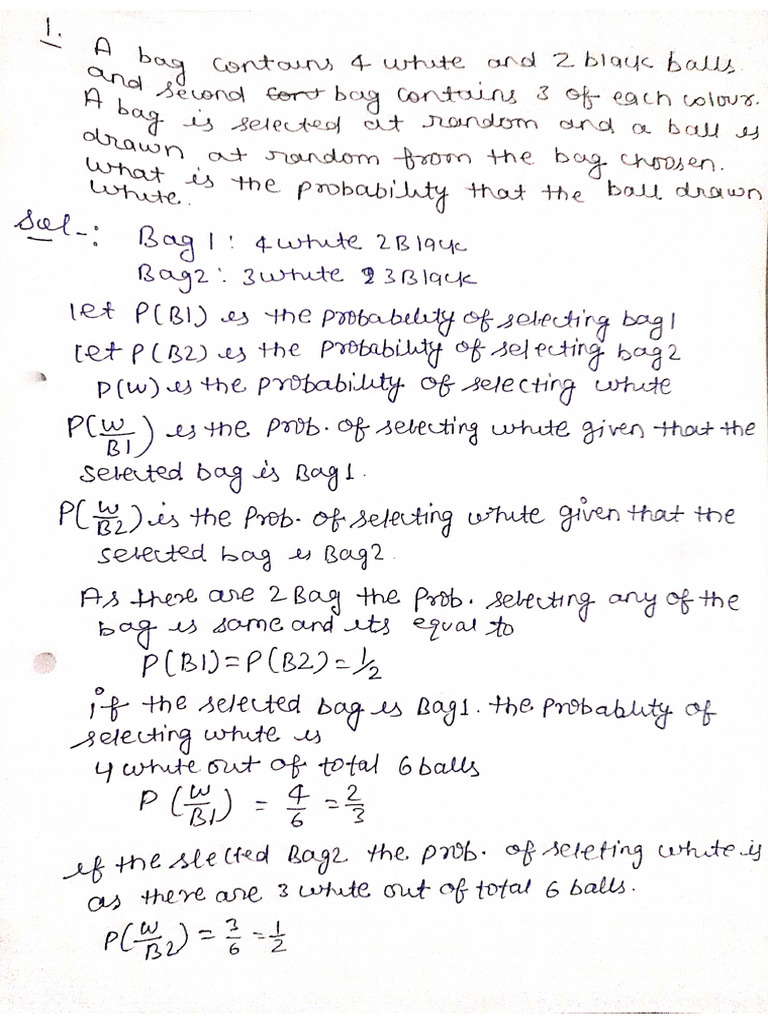 1.
A bag contains 4 white and 2 black balls
and second bag contains 3 of each colour.
A bag is selected at random and a ball is
drawn at random from the bag choosen.
What is the probability that the ball drawn
white.
Sol-:
Bag 1 : 4 white 2 Black
Bag2 : 3 white 3 Black
let P(B1) is the probability of selecting bag1
let P(B2) is the probability of selecting bag2
P(W) is the probability of selecting white
P(W/B1) is the prob. of selecting white given that the
selected bag is Bag1.
P(W/B2) is the Prob. of selecting white given that the
selected bag is Bag2.
As there are 2 Bag the Prob. selecting any of the
bag is same and its equal to
P(B1) = P(B2) = 1/2
if the selected bag is Bag1. the Probablity of
selecting white is
4 white out of total 6 balls
P(W/B1) = 4/6 = 2/3
if the slected Bag2 the prob. of seleting white is
as there are 3 white out of total 6 balls.
P(W/B2) = 3/6 = 1/2